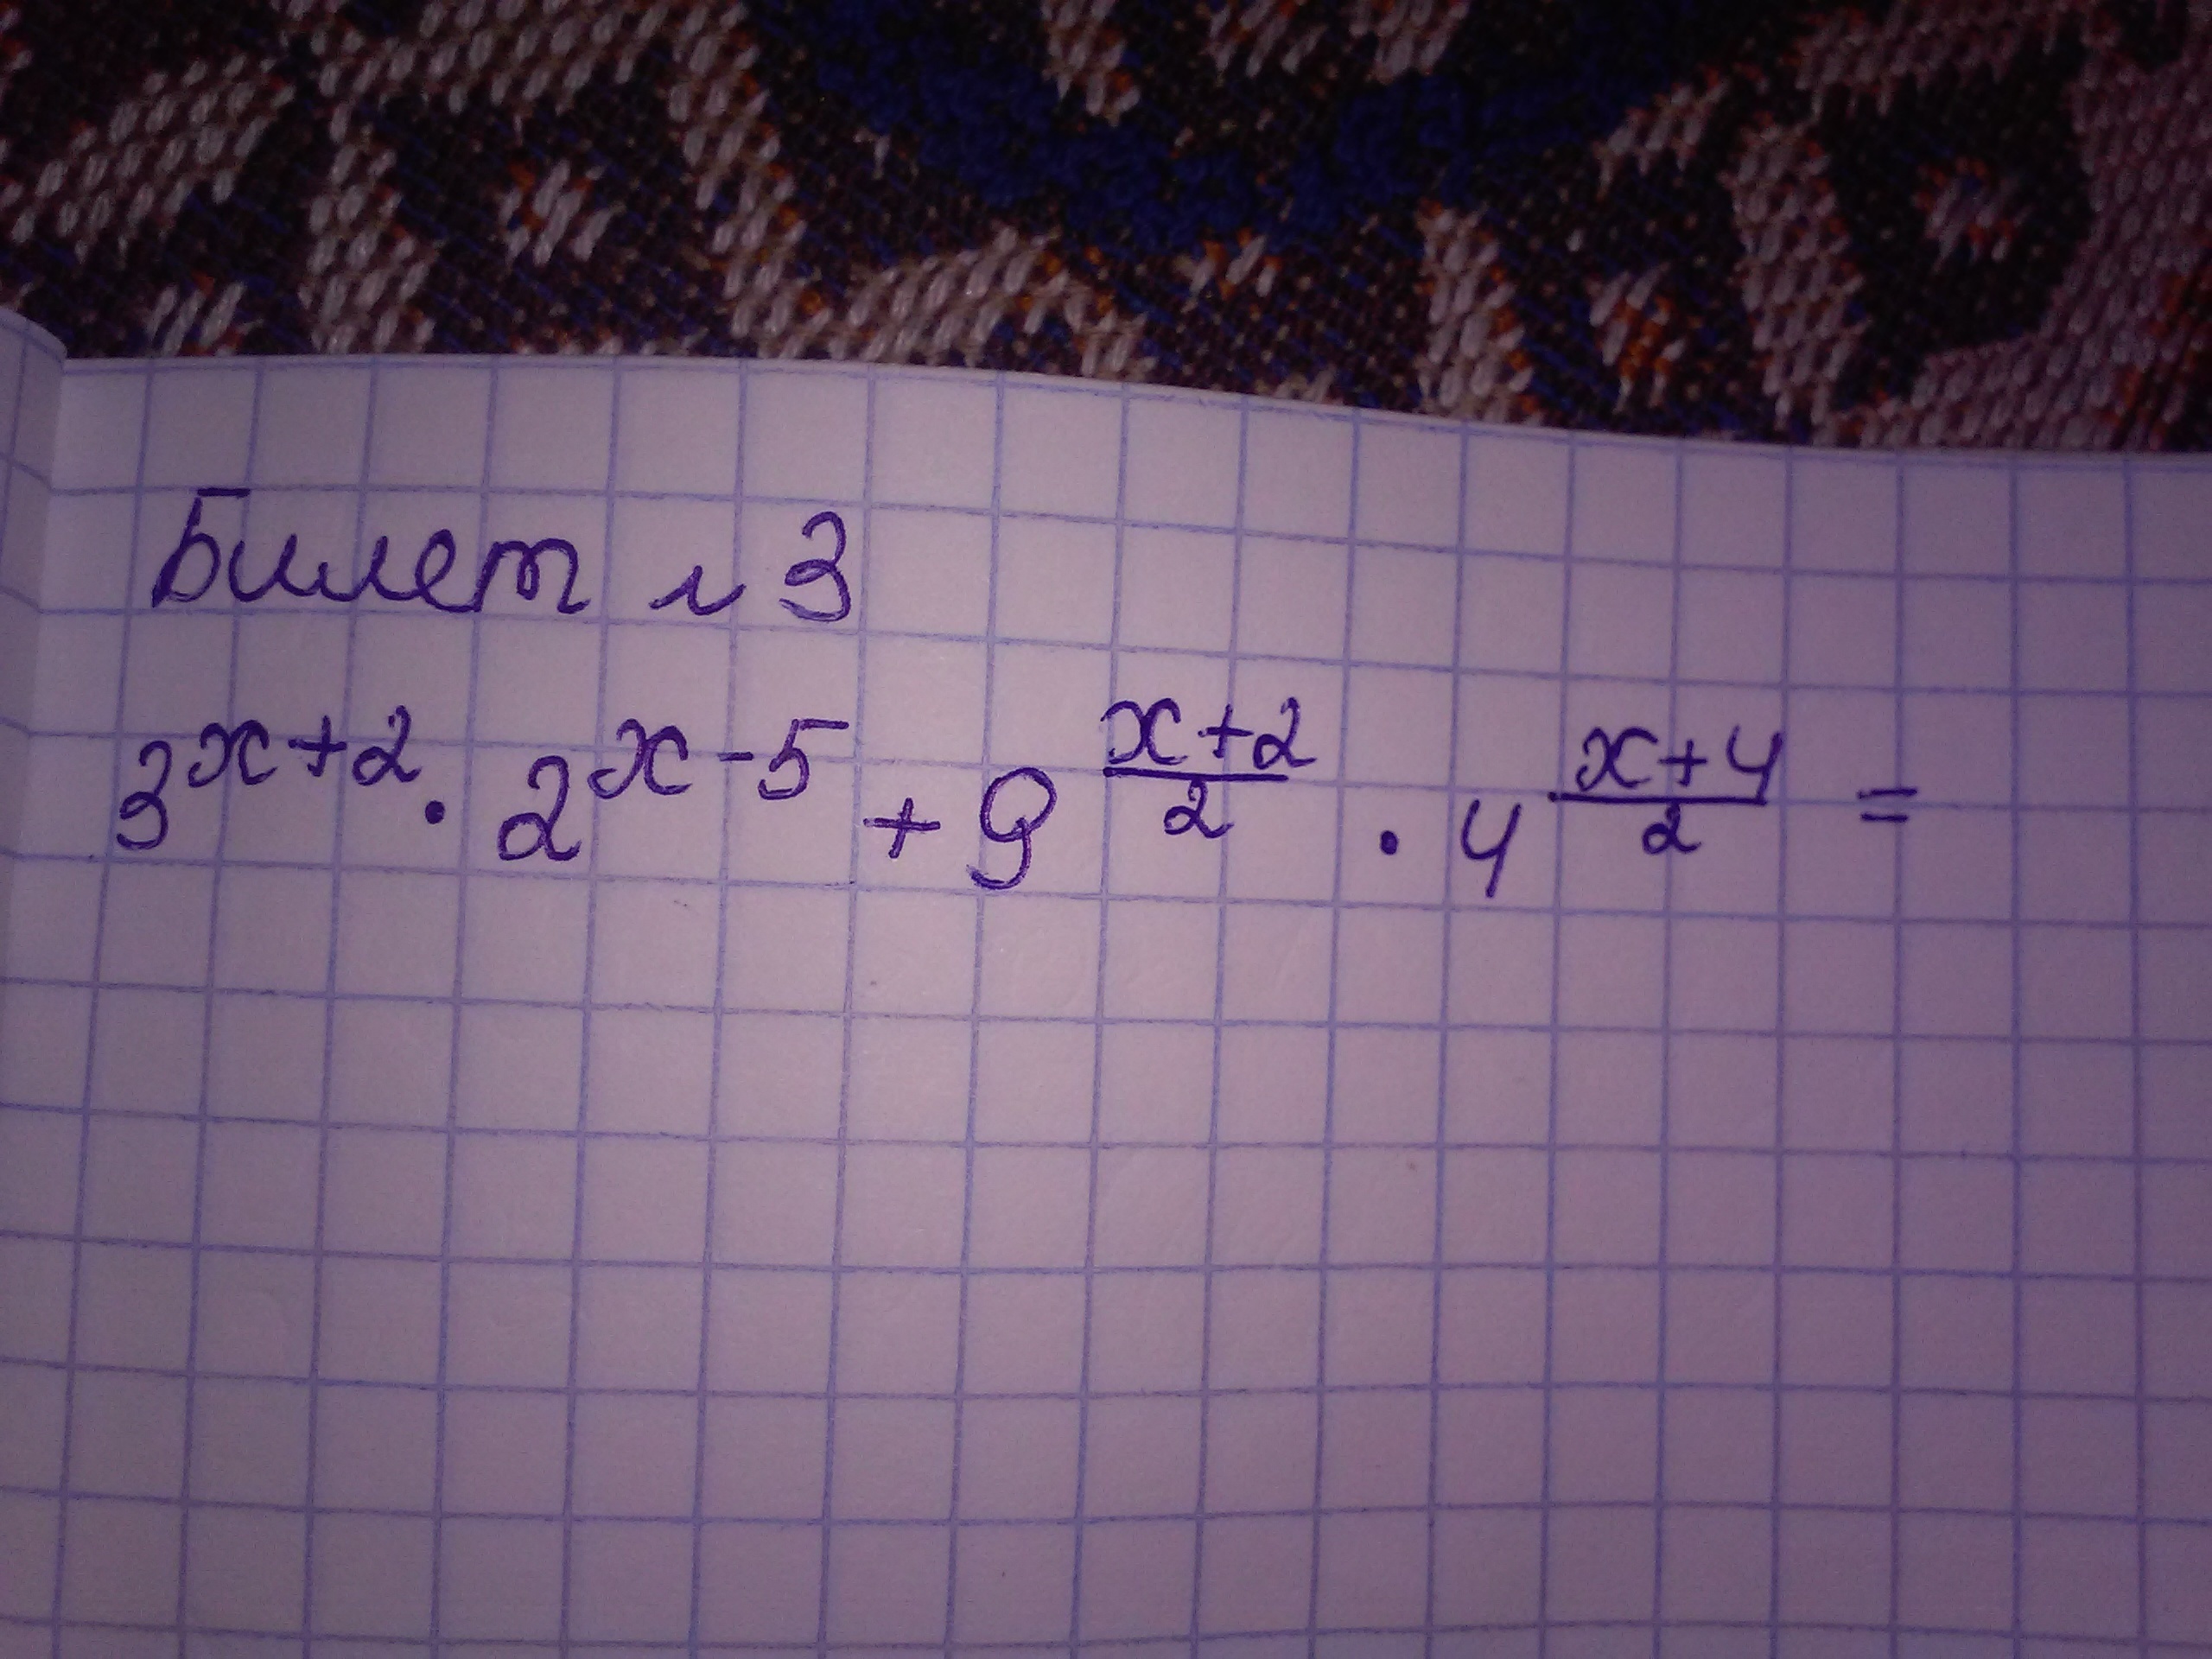 Билет N3
3^{x+2} · 2^{x-5} + 9^{\frac{x+2}{2}} · 4^{\frac{x+4}{2}} =